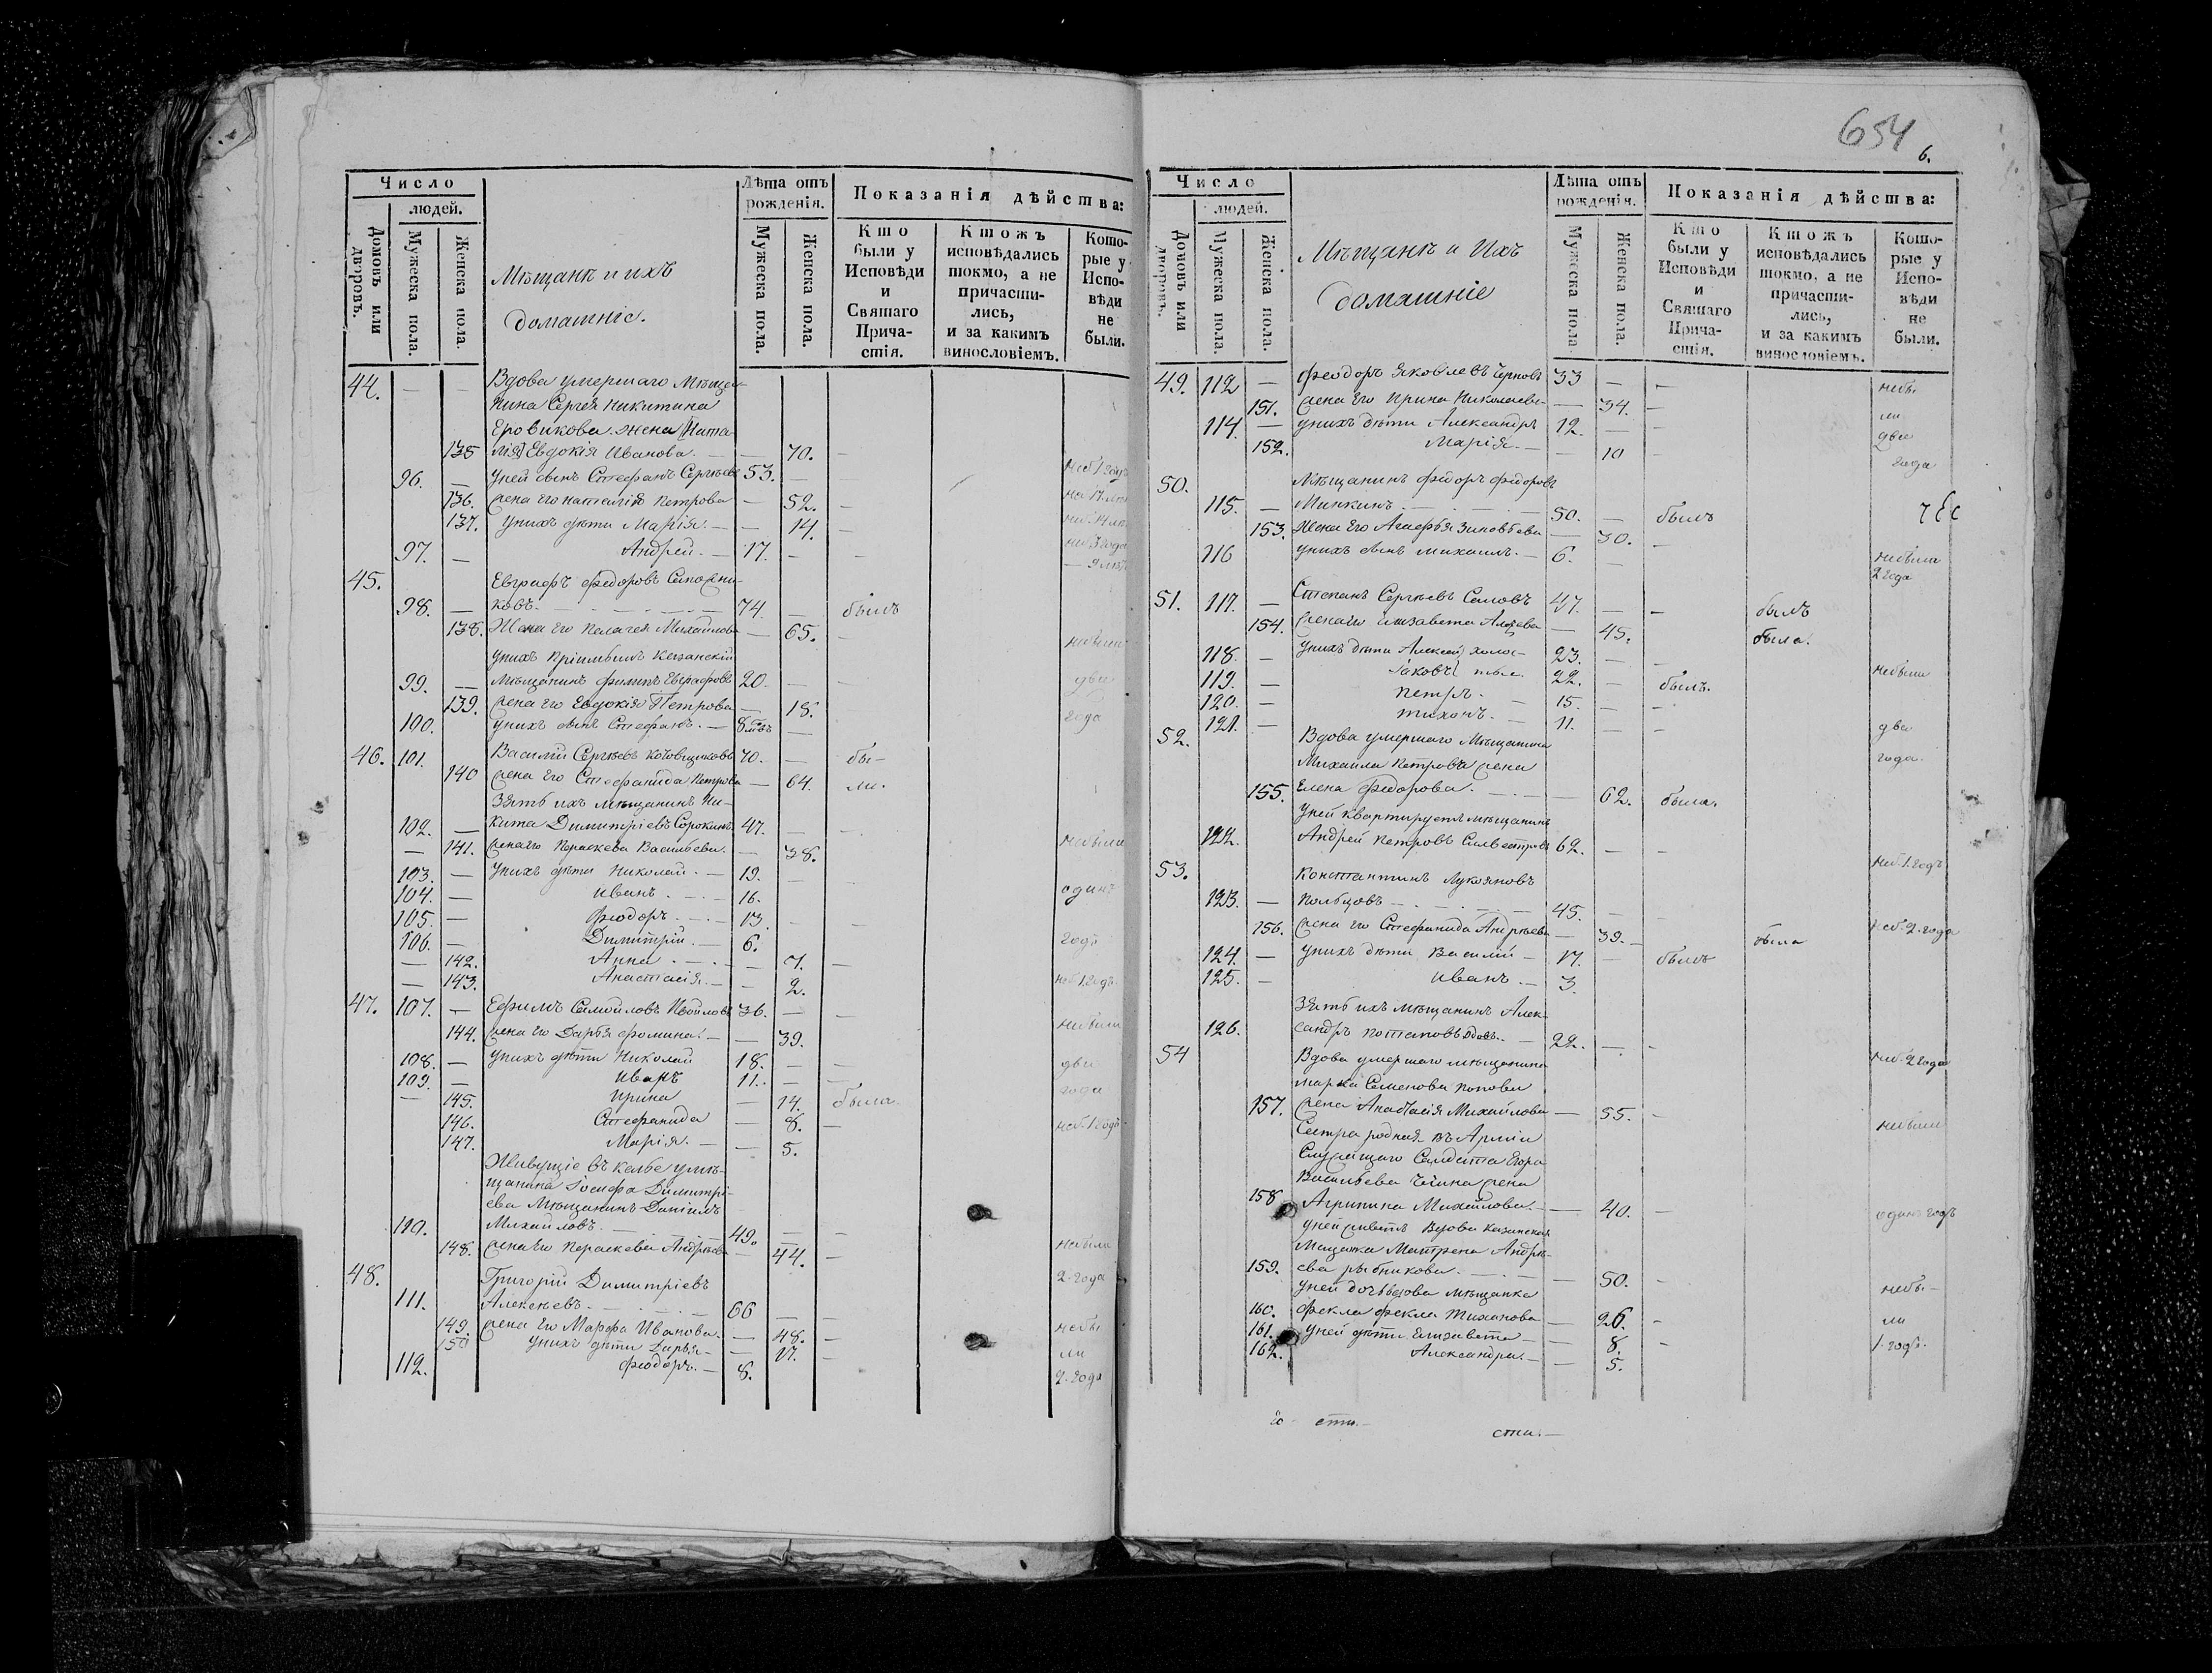 654
6.
Число
людей.
Домовъ или дворовъ.
Мужеска пола.
Женска пола.
Мѣщанѣ и ихъ
домашніе.
Лѣта отъ
рожденія.
Мужеска пола.
Женска пола.
Показанія дѣйства:
Кто были у Исповѣди и Святаго Причастія.
Ктожъ исповѣдались токмо, а не причастились, и за какимъ винословіемъ.
Которые у Исповѣди не были.
44. — — Вдова умершаго Мѣща-
нина Сергея Никитина
Еровикова жена Ната
135 лія Евдокія Иванова. — — 70. —
96. — уней сынъ Стефанъ Сергѣевъ 53. — неб 1 годъ
136. жена его наталія Петрова — 52. —
137. унихъ дѣти Марія. — — 14.
97. — Андрей. — 17. — неб 3 года
45. Евграфъ Федоровъ Сапожни-
98. — ковъ. — 74. — былъ
138. Жена Его Пелагея Михайлова — 65. — небыли
унихъ Казанскій
99. — мѣщанинъ филипъ Евграфовъ 20. — — два
139. жена его Евдокія Петрова — 18.
100. унихъ сынъ Стефанъ. — 8 — года
46. 101. Василій Сергѣевъ 70. — бы-
140 жена его Стефанида Петрова — 64. ли.
Зять ихъ мѣщанинъ Ни-
102. — кита Димитріевъ Сорокинъ 47. — —
— 141. жена его Параскева Васильева. — 38. небыли
103. — унихъ дѣти Николай. — 19. —
104. — Иванъ. — 16. одинъ
105. — Феодоръ. — 13. —
106. — Димитрій. — 6. годъ
— 142. Анна. — — 7. —
— 143. Анастасія. — — 2. неб 1. годъ.
47. 107. — Ефимъ Самойловъ 36. — —
144. жена его Дарья Фомина. — — 39. небыли
108. — унихъ дѣти Николай 18. — — два
109. — Иванъ 11. — — года
— 145. Ирина — 14. была.
146. Стефанида — 8. — неб. 1 годъ.
147. Марія. — — 5.
Живущіе въ
щанина Іосифа Димитрі-
ева Мѣщанинъ Даніилъ
110. Михайловъ. — 49. — —
148. жена его Параскева Андрѣева — 44. — небыли
48. Григорій Димитріевъ 2. года
111. Алексѣевъ. — 66 — —
149. жена его Марфа Иванова. — — 48. — небы
150 унихъ дѣти Дарья — — 17. — ли
112. Феодоръ. — 8. 2. года
Число
людей.
Домовъ или дворовъ.
Мужеска пола.
Женска пола.
Мѣщанѣ и Ихъ
домашніе
Лѣта отъ
рожденія.
Мужеска пола.
Женска пола.
Показанія дѣйства:
Кто были у Исповѣди и Святаго Причастія.
Ктожъ исповѣдались токмо, а не причастились, и за какимъ винословіемъ.
Которые у Исповѣди не были.
49. 112 — Феодоръ Яковлевъ Черновъ 33 — — небы
151. жена Его Ирина Николаева — 34. — ли
114. — унихъ дѣти Александръ 12. — — два
152. Марія — — 10 года
50. Мѣщанинъ Федоръ Федоровъ
115. — Минкинъ. — 50. — былъ
153. Жена Его Агафья Зиновьева — 30. —
116 унихъ сынъ михаилъ. — 6. — небыли
2 года
51. 117. — Степанъ Сергѣевъ Саловъ 47. — — былъ
154. жена его Елизавета — 45. была.
118. — унихъ дѣти Алексей холос- 23. — —
119. — Іаковъ тые 22. — былъ. небыли
120. — петръ. — 15. — —
121. — тихонъ. — 11. — — два
52. Вдова умершаго мѣщанина
Михаила Петрова жена года.
155. Елена Федорова. — — 62. была.
уней квартируетъ мѣщанинъ
122. Андрей Петровъ Силвестровъ 62. — —
неб. 1. годъ
53. Константинъ Лукояновъ
123. — Кольцовъ — 45. — —
156. жена его Стефанида Андреева — 39. — была неб. 2. года
124. — унихъ дѣти Василій — 17. — былъ
125. — Иванъ. — 3.
Зять ихъ мѣщанинъ Алек-
126. сандръ Потаповъ вдовъ. — 22. — —
54 Вдова умершаго мѣщанина неб. 2 года
марка Семенова Попова
157. жена Анастасія Михайлова — 55. —
Сестра родная въ Арміи небыли
Служащаго Салдата Егора
Васильева жена
158 Агрипина Михайлова. — — 40. — одинъ годъ
уней живетъ Вдова казанская
Мещанка Матрена Андре-
159. ева рыбникова. — — 50. —
уней дочь вдова мѣщанка небы-
160. фекла фекла Тиханова — 26. — ли
161. уней дѣти Елизавета — — 8. — 1. годъ.
162. Александра. — — 5.
сти.—
сти.—